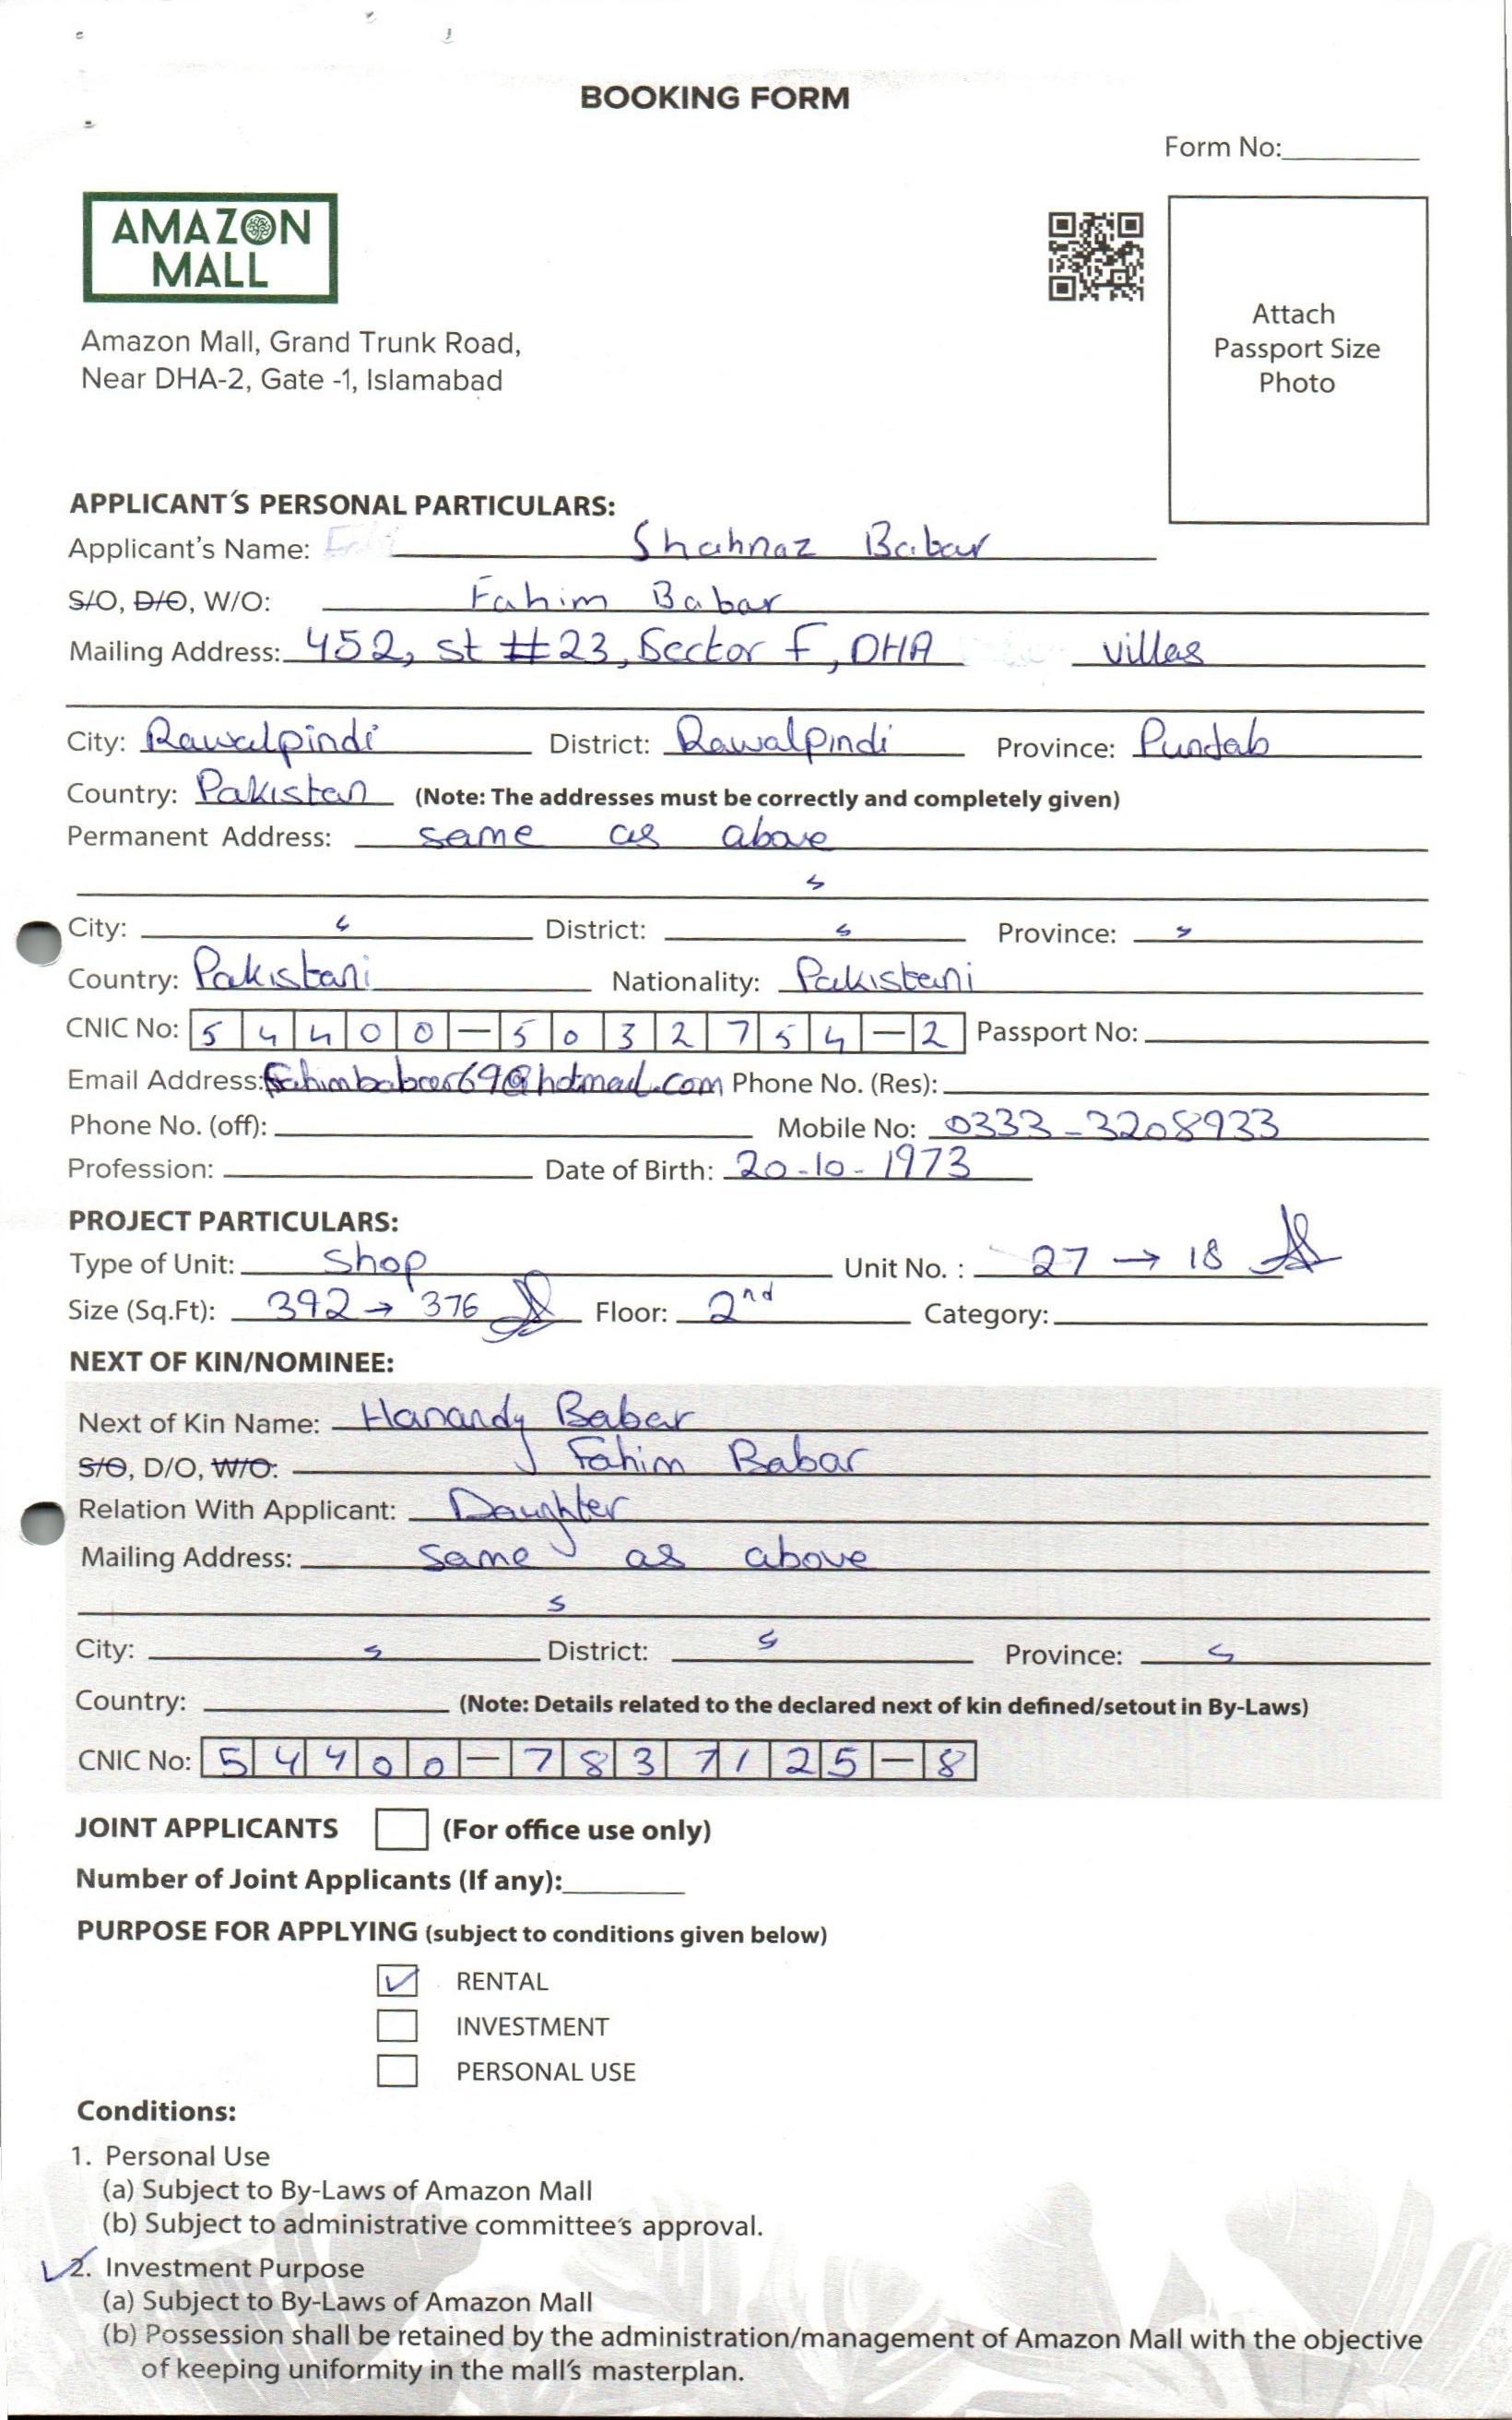 BOOKING FORM
Form No:
AMAZON
MALL
Attach
Passport Size
Photo
Amazon Mall, Grand Trunk Road,
Near DHA-2, Gate -1, Islamabad
APPLICANT'S PERSONAL PARTICULARS:
Applicant's Name: Shahnaz Babar
S/O, D/O, W/O: Fahim Babar
Mailing Address: 452, st #23, Sector F, DHA villas
City: Rawalpindi District: Rawalpindi Province: Punjab
Country: Pakistan (Note: The addresses must be correctly and completely given)
Permanent Address: same as above
City: District: Province:
Country: Pakistani Nationality: Pakistani
CNIC No: 54400-5032754-2 Passport No:
Email Address: Fahimbabar69@hotmail.com Phone No. (Res):
Phone No. (off): Mobile No: 0333-3208933
Profession: Date of Birth: 20-10-1973
PROJECT PARTICULARS:
Type of Unit: Shop Unit No. : 27 → 18
Size (Sq.Ft): 392 → 376 Floor: 2nd Category:
NEXT OF KIN/NOMINEE:
Next of Kin Name: Babar
S/O, D/O, W/O: Fahim Babar
Relation With Applicant: Daughter
Mailing Address: same as above
City: District: Province:
Country: (Note: Details related to the declared next of kin defined/setout in By-Laws)
CNIC No: 54400-7837125-8
JOINT APPLICANTS (For office use only)
Number of Joint Applicants (If any):
PURPOSE FOR APPLYING (subject to conditions given below)
RENTAL
INVESTMENT
PERSONAL USE
Conditions:
1. Personal Use
(a) Subject to By-Laws of Amazon Mall
(b) Subject to administrative committee's approval.
2. Investment Purpose
(a) Subject to By-Laws of Amazon Mall
(b) Possession shall be retained by the administration/management of Amazon Mall with the objective
of keeping uniformity in the mall's masterplan.